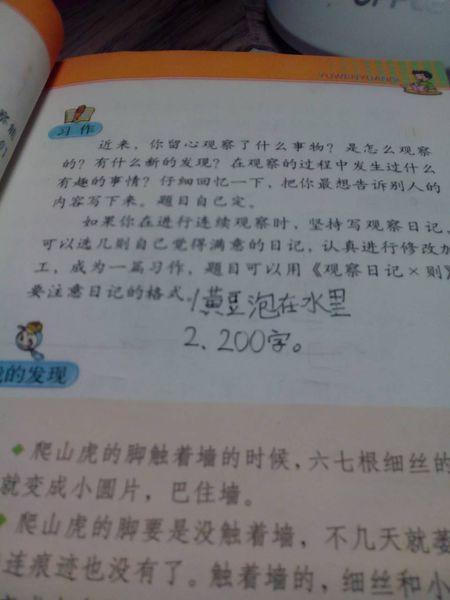 YUWENYUANDI
习作
近来，你留心观察了什么事物？是怎么观察
的？有什么新的发现？在观察的过程中发生过什么
有趣的事情？仔细回忆一下，把你最想告诉别人的
内容写下来。题目自己定。
如果你在进行连续观察时，坚持写观察日记，
可以选几则自己觉得满意的日记，认真进行修改加
工，成为一篇习作，题目可以用《观察日记×则》
要注意日记的格式。1黄豆泡在水里
2、200字。
我的发现
爬山虎的脚触着墙的时候，六七根细丝的
就变成小圆片，巴住墙。
爬山虎的脚要是没触着墙，不几天就萎
连痕迹也没有了。触着墙的，细丝和小